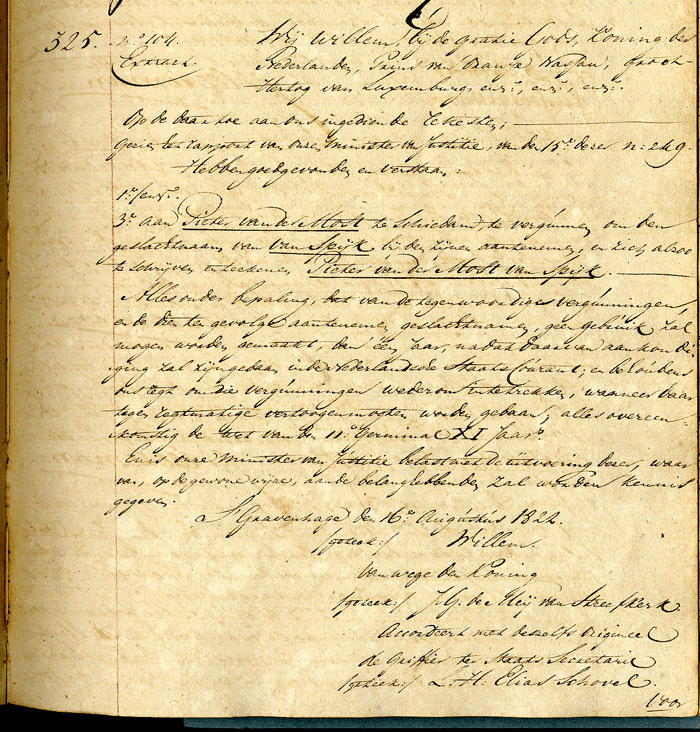 325. No. 104. Wij Willem, bij de gratie Gods, Koning der
Extract. Nederlanden, Prins van Oranje Nassau, Groot-
Hertog van Luxemburg, enz:, enz:, enz:.
Op de daartoe aan ons ingediende rekesten;
Gezien het rapport van onzen minister van Justitie, van den 15e dezer no: 249.
Hebben goedgevonden en verstaan:
1e/enz:
3e aan Pieter van der Most te Schiedam, te vergunnen om den
geslachtsnaam van van Spijk bij den zijnen aantenemen, en zich alzoo
te schrijven en teekenen Pieter van der Most van Spijk.
Alles onder bepaling, dat van de tegenwoordige vergunningen,
en de dien ten gevolge aantenemen geslachtsnamen, geen gebruik zal
mogen worden gemaakt, dan één jaar, nadat daarvan aankondi-
ging zal zijn gedaan in de Nederlandsche Staats Courant; en behoudens
ons regt om die vergunningen wederom intetrekken, wanneer daar
tegen regtmatige vertoogen mogten worden gedaan; alles overeen-
komstig de wet van den 11e Germinal XI Jaar.
En is onze minister van Justitie belast met de uitvoering dezer, waar
van, op de gewone wijze, aan de belanghebbenden zal worden kennis
gegeven.
S'Gravenhage den 16e Augustus 1822.
/geteek:/ Willem.
van wege den Koning
/geteek:/ J. G. de Meij van Streefkerk.
Accordeert met deszelfs origineel
de Griffier ter Staats Secretarie
/geteek:/ L. H. Elias Schovel.
Voor